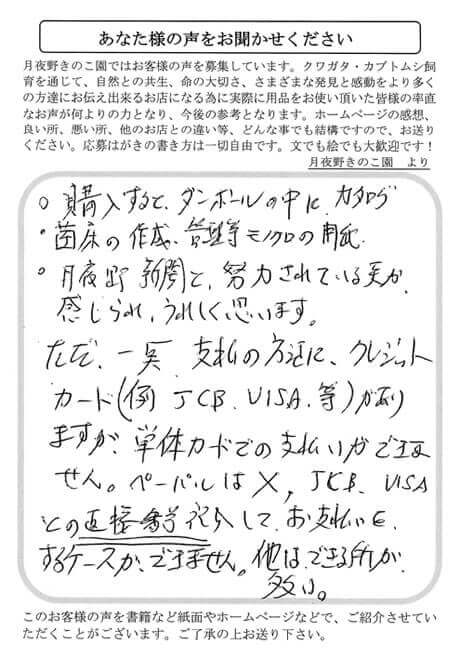 あなた様の声をお聞かせください
月夜野きのこ園ではお客様の声を募集しています。クワガタ・カブトムシ飼
育を通じて、自然との共生、命の大切さ、さまざまな発見と感動をより多く
の方達にお伝え出来るお店になる為に実際に用品をお使い頂いた皆様の率直
なお声が何よりの力となり、今後の参考となります。ホームページの感想、
良い所、悪い所、他のお店との違い等、どんな事でも結構ですので、お送り
ください。応募はがきの書き方は一切自由です。文でも絵でも大歓迎です！
月夜野きのこ園 より
○購入すると、ダンボールの中に、カタログ
・菌床の作成、管理等モノクロの用紙
○月夜野新聞と、努力されている点が、
感じられ、うれしく思います。
ただ、一点、支払の方法に、クレジット
カード(例 JCB、VISA、等)があり
ますが、単体カードでの支払いができま
せん。ペーパルは×、JCB、VISA
との直接番号記入して、お支払いを、
するケースが、できません。他は、できる所が、
多い。
このお客様の声を書籍など紙面やホームページなどで、ご紹介させてい
ただくことがございます。ご了承の上お送り下さい。